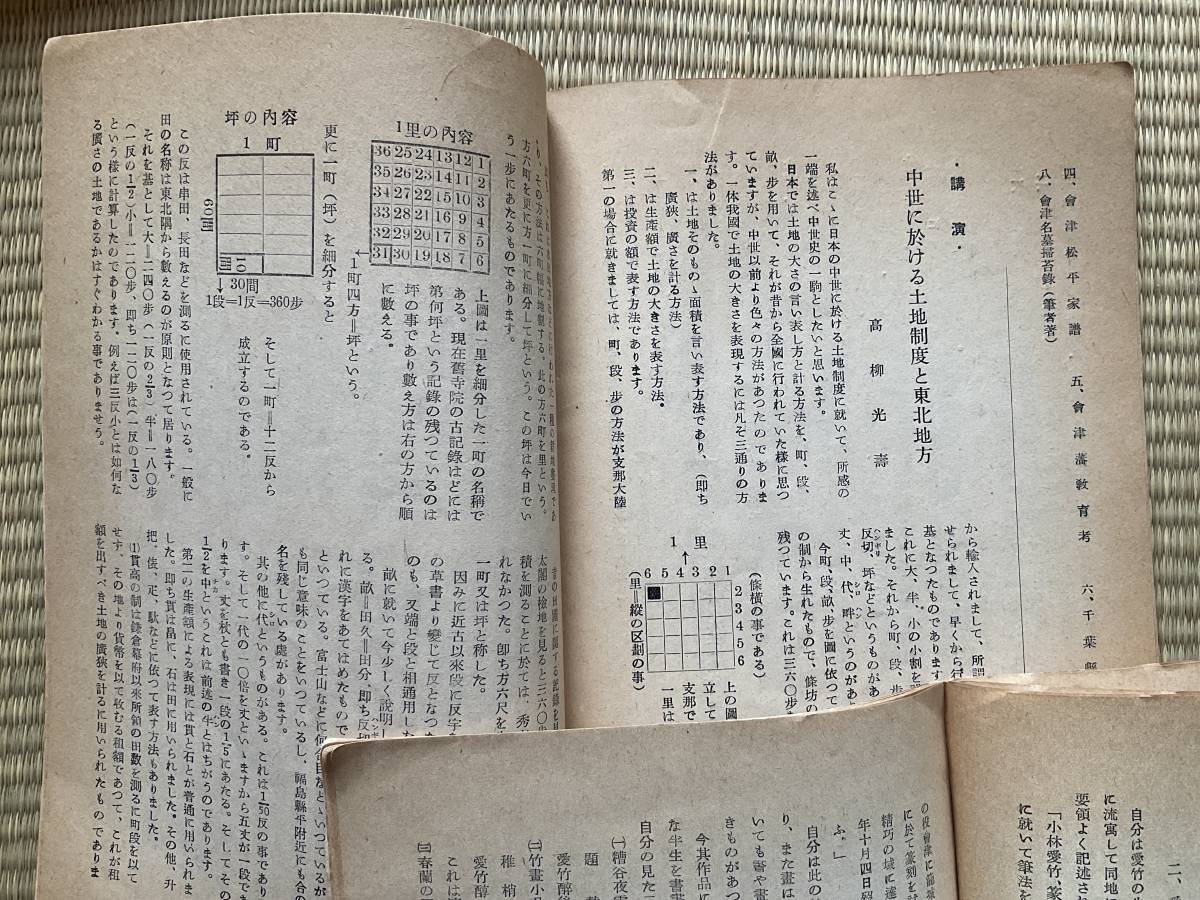 四、會津松平家譜　五、會津藩教育考　六、千葉縣
八、會津名墓掃苔錄（筆者著）
・講演・
中世に於ける土地制度と東北地方
高柳光壽
私はこゝに日本の中世に於ける土地制度に就いて、所感の
一端を述べ中世史の一駒としたいと思います。
日本では土地の大さの言い表し方と計る方法を、町、段、
畝、步を用いて、それが昔から全國に行われていた樣に思つ
ていますが、中世以前より色々の方法があつたのでありま
す。一体我國で土地の大きさを表現するには凡そ三通りの方
法がありました。
一、は土地そのものゝ面積を言い表す方法であり、（即ち
廣狹、廣さを計る方法）
二、は生產額で土地の大きさを表す方法。
三、は投資の額で表す方法であります。
第一の場合に就きましては、町、段、步の方法が支那大陸
から輸入されまして、早くから行
せられまして、所謂
基となつたものであります
これに大、半、小の小割を
ました。それから町、段、步
反切、坪などというものがあ
丈、中、代、畔というのがあ
今町、段、畝を圖に依つて
の制から生れたもので、條坊の
残つています。これは三六〇步
（條橫の事である）
1 里
6 5 4 3 2 1
2
3
4
5
6
（里＝縱の区劃の事）
上の圖
立して
支那で
一里は
り、その方法は六町幅に地割する、此の方六町を里という。
方六町を更に方一町に細分して坪という。この坪は今日でい
う一步にあたるものであります。
1里の內容
36 25 24 13 12 1
35 26 23 14 11 2
34 27 22 15 10 3
33 28 21 16 9 4
32 29 20 17 8 5
31 30 19 18 7 6
1町四方＝坪という。
上圖は一里を細分した一町の名稱で
ある。現在舊寺院の古記錄はどには
第何坪という記錄の残つているのは
坪の事であり數え方は右の方から順
に數える。
更に一町（坪）を細分すると
坪の內容
1 町
60間
10間
30間
1段＝1反＝360步
そして一町＝十二反から
成立するのである。
この反は串田、長田などを測るに使用されている。一般に
田の名称は東北隅から數えるのが原則となつて居ります。
それを基として大＝二四〇步（一反の2/3）半＝一八〇步
（一反の1/2）小＝一二〇步、即ち一二〇步は（一反の1/3）
という樣に計算したのであります。例えば三反小とは如何な
る廣さの土地であるかはすぐわかる事でありませう。
太閤の檢地を見ると三六〇步
積を測ることに於ては、秀
れなかつた。卽ち方六尺を
一町又は坪と称した。
因みに近古以來段に反字
の草書より變じて反となつた
のも、又端と段と相通用した
畝に就いて今少しく說明し
る。畝＝田久＝田分、即ち反切
れに漢字をあてはめたもので
といつている。富士山などに何合目などゝいつているが
も同じ意味のことをいつているし、福島縣平附近にも合の
名を殘している處があります。
其の他に代というものがある。これは1/50反の事であり
す。そして一代の一〇倍を丈といゝますから五丈が一段であ
ります。丈を杖とも書き一段の1/5にあたる。そしてその
1/2を中ということこれは前述の半とはちがうのであります。
第一の生產額による表現には貫と石とが普通に用いられま
した。即ち貫は畠に、石は田に用いられました。その他、升
把、俵、疋、駄などに依つて表す方法もありました。
(1)貫高の制は鎌倉幕府以來所領の田數を測るに町段を以て
せず、その地より貨幣を以て收むる租額であつて、これが租
額を出すべき土地の廣狹を計るに用いられたものでありま
の役會津に籠城
に於て篆刻を
精巧の域に達
年十月四日
ふ。」
自分は此の
り、また畫に
いても屬や畫
きものがあつ
今其作品に
な半生を書畫
自分の見た
㈠糟谷夜雪
題
愛竹醉後
㈡竹畫小品
稚梢
愛竹醉
これは
㈢春蘭の
二、
自分は愛竹の
に流寓して同地
要領よく記述され
「小林愛竹、篆
に就いて筆法を